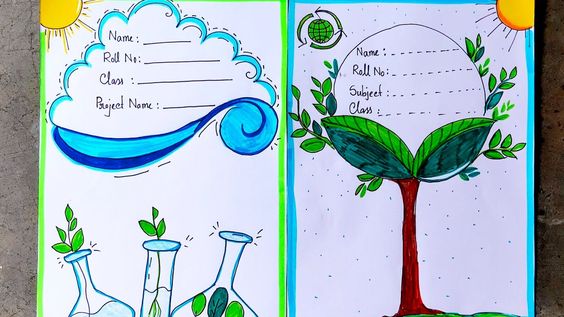 Name:
Roll No:
Class :
Project Name :
Name :
Roll No :
Subject :
Class :